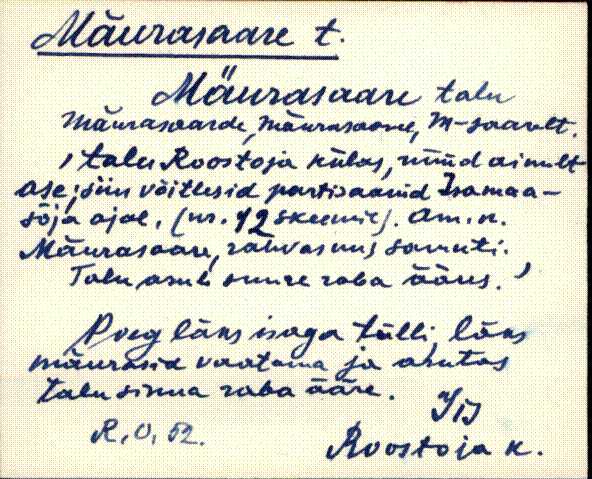 Mäurasaare t.
Mäurasaare talu
Mäurasaarde, Mäurasaares, M-saarelt.
' talu Roostoja külas, nüüd ainult
ase; siin võitlesid partisaanid Isamaa-
sõja ajal. (nr. 12 skeemil). Am. n.
Mäurasaare, rahvasuus samuti.
Talu asub suure raba ääres. '
Poeg läks isaga tülli, läks
mäurasid vaatama ja asutas
talu sinna raba ääre.
R. O. 52.
Roostoja k.